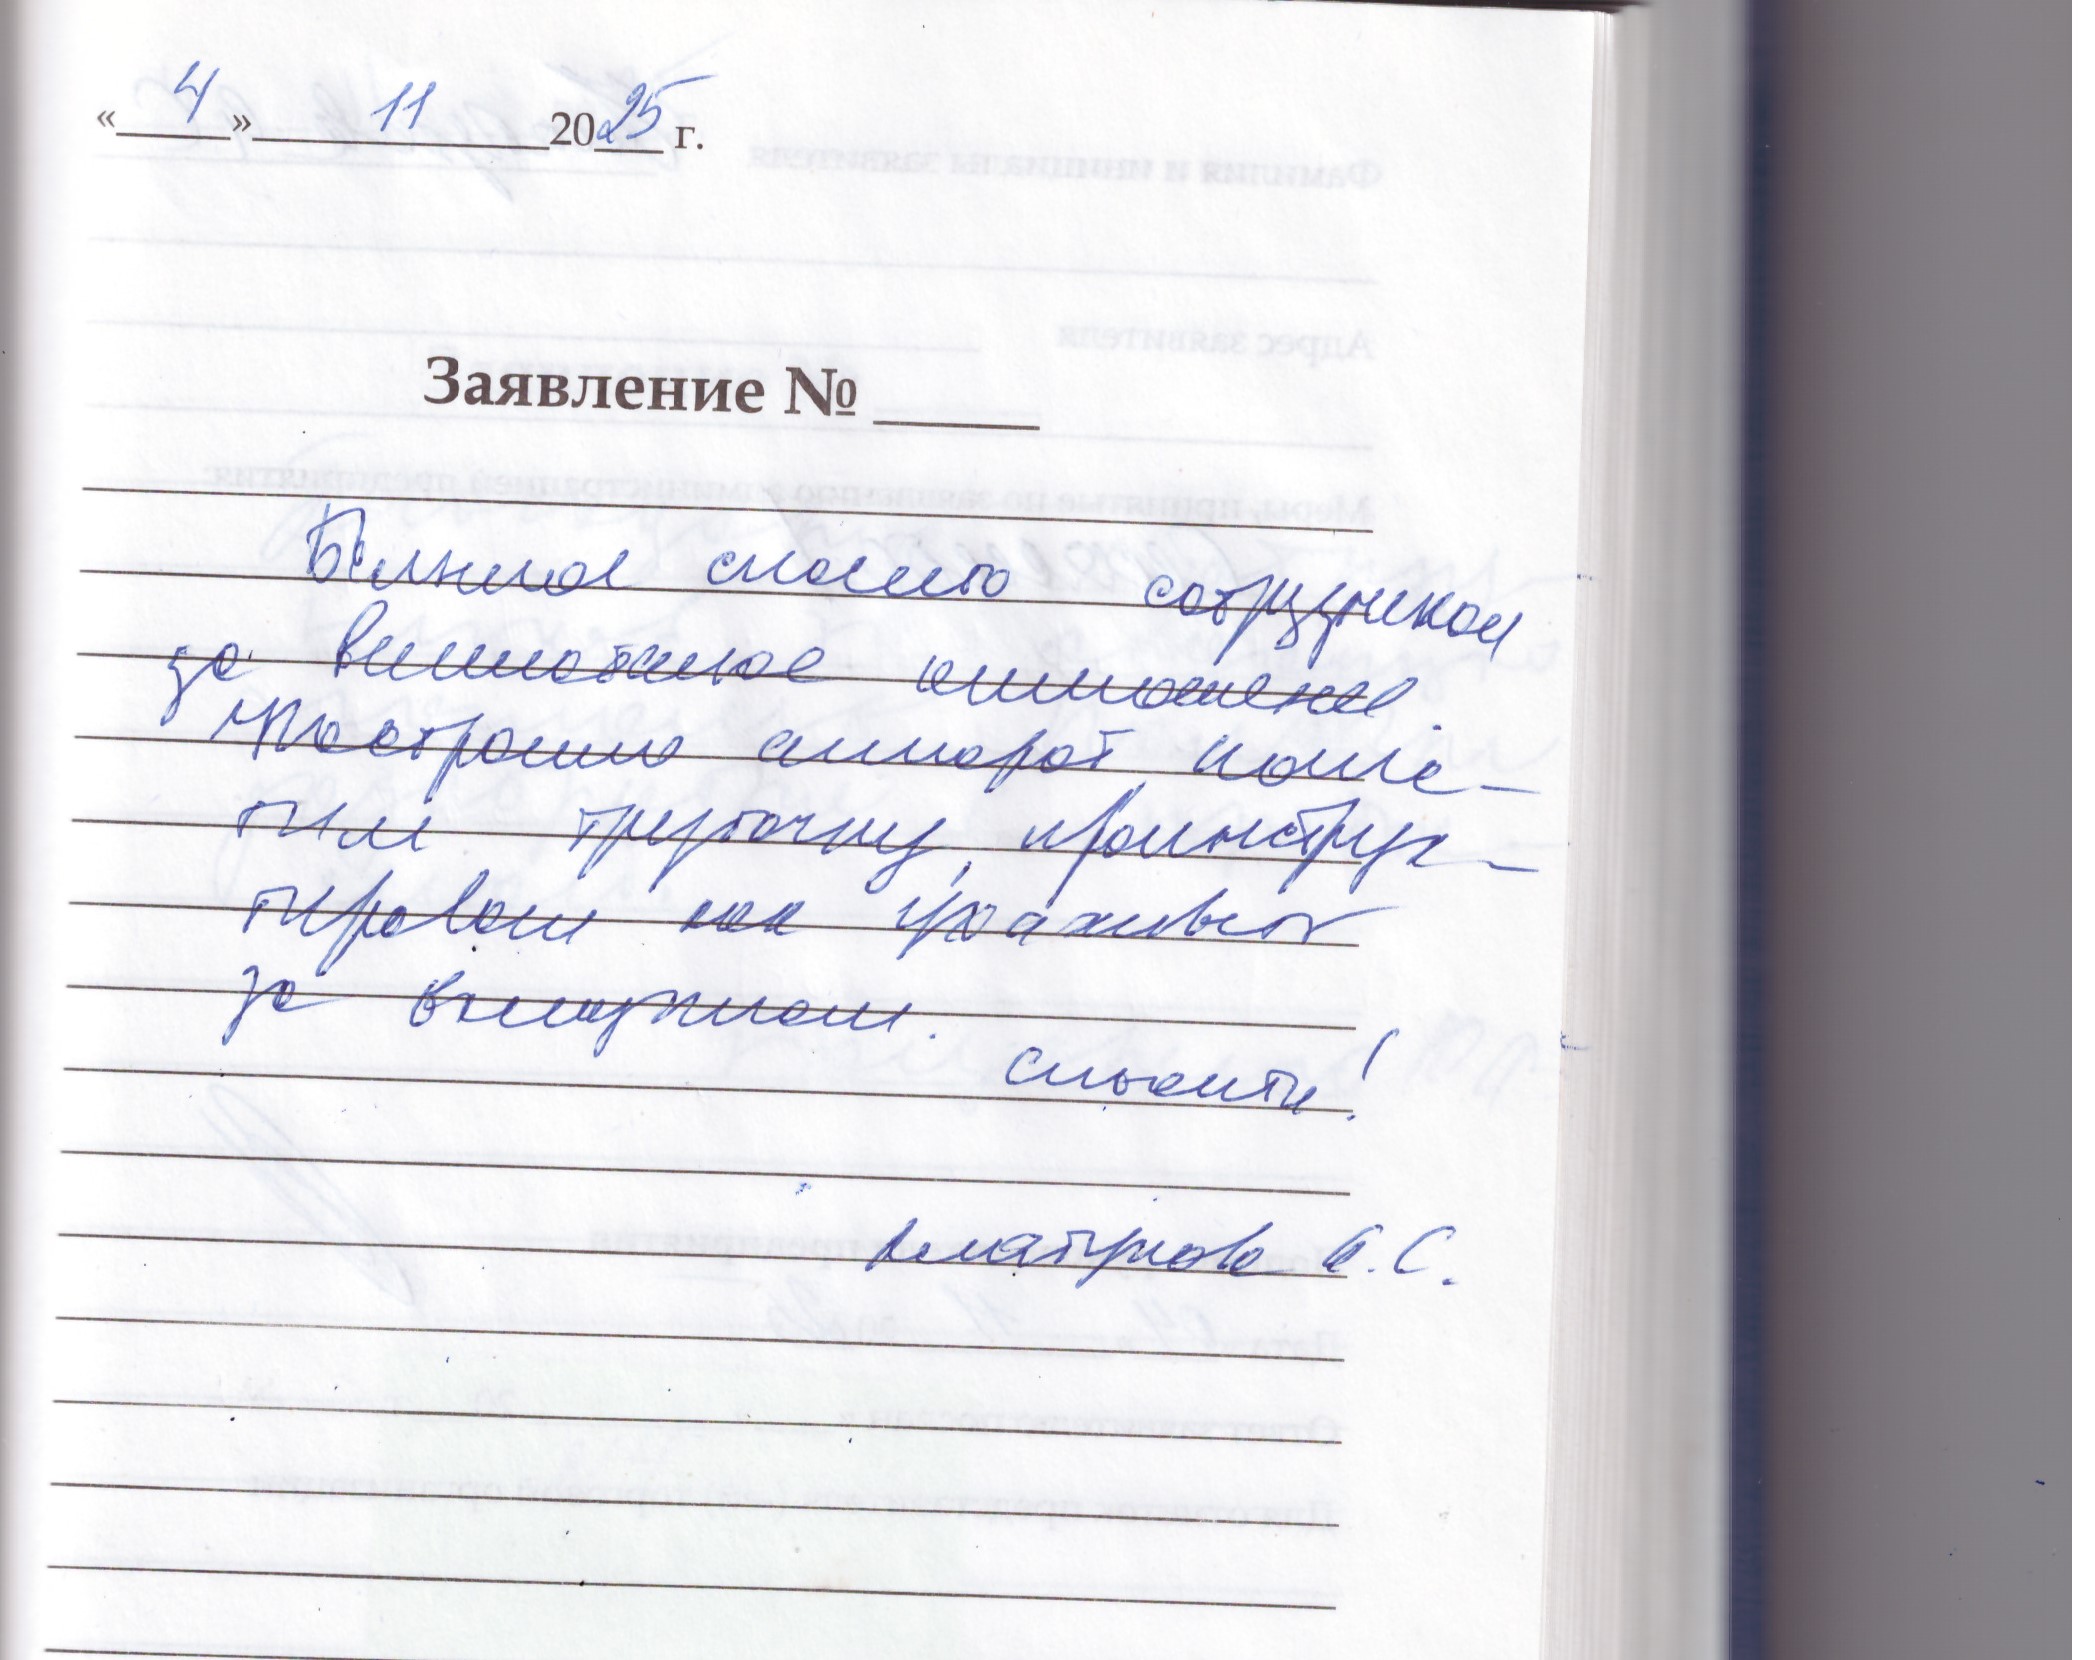 « 4 » 11 2025 г.
Заявление №
Большое спасибо сотрудникам
за внимательное отношение.
Настроили аппарат, почис-
тили трубочку, проинструк-
тировали как ухаживать
за вкладышом.
спасибо!
А.С.